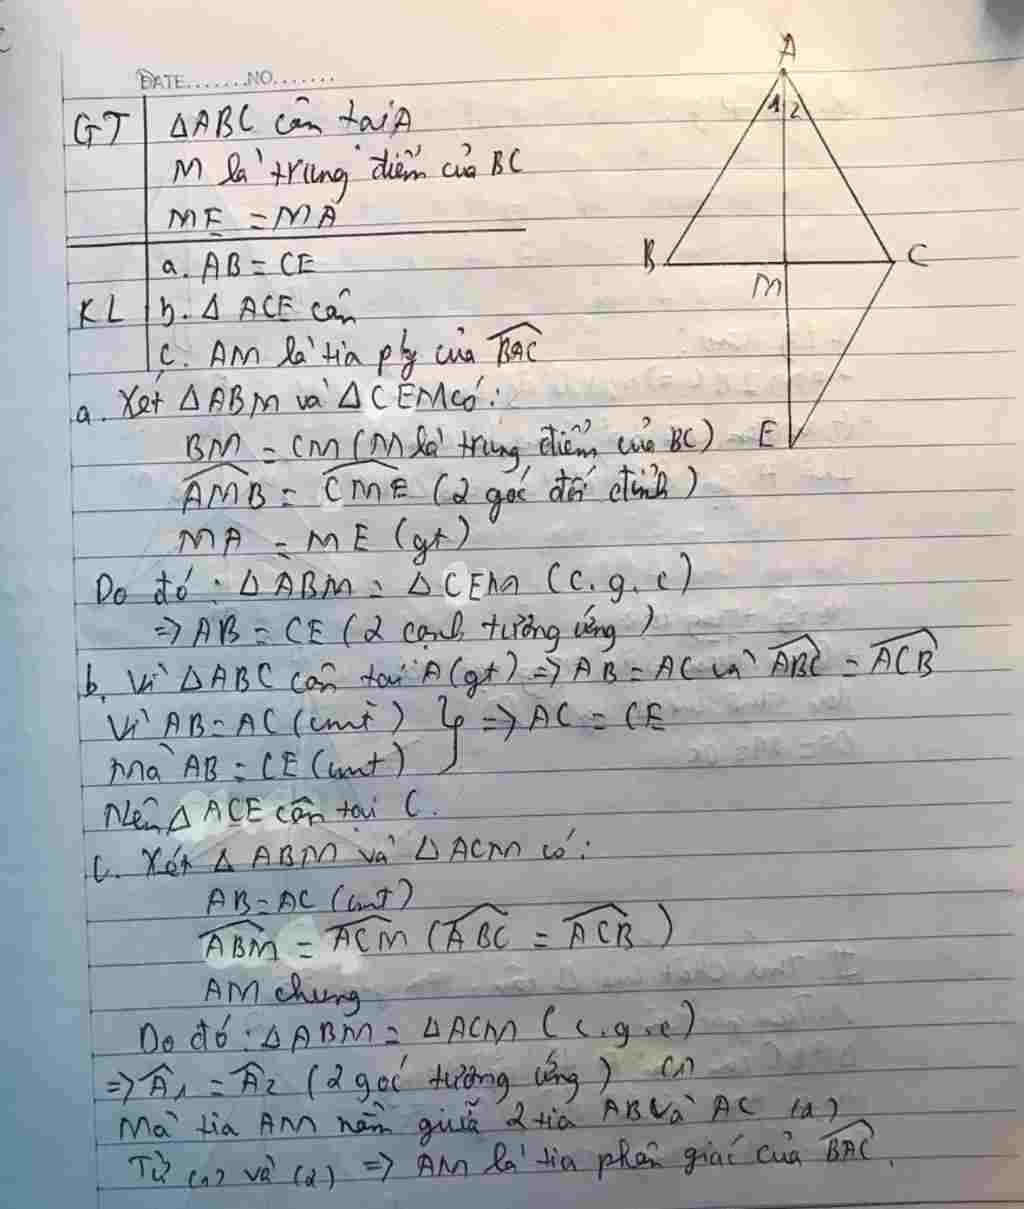 DATE.......NO.......
GT
ΔABC cân tại A
M là trung điểm của BC
ME = MA
KL
a. AB = CE
b. Δ ACE cân
c. AM là tia p/g của BAC
A
1 2
B
C
M
E
a. Xét ΔABM và ΔCEM có:
BM = CM (M là trung điểm của BC)
AMB = CME (2 góc đối đỉnh)
MA = ME (gt)
Do đó: ΔABM = ΔCEM (c.g.c)
=> AB = CE (2 cạnh tương ứng)
b. Vì ΔABC cân tại A (gt) => AB = AC và ABC = ACB
Vì AB = AC (cmt) } => AC = CE
Mà AB = CE (cmt)
Nên Δ ACE cân tại C.
c. Xét Δ ABM và Δ ACM có:
AB = AC (cmt)
ABM = ACM (ABC = ACB)
AM chung
Do đó: ΔABM = ΔACM (c.g.c)
=> A1 = A2 (2 góc tương ứng) (1)
Mà tia AM nằm giữa 2 tia AB và AC (2)
Từ (1) và (2) => AM là tia phân giác của BAC.